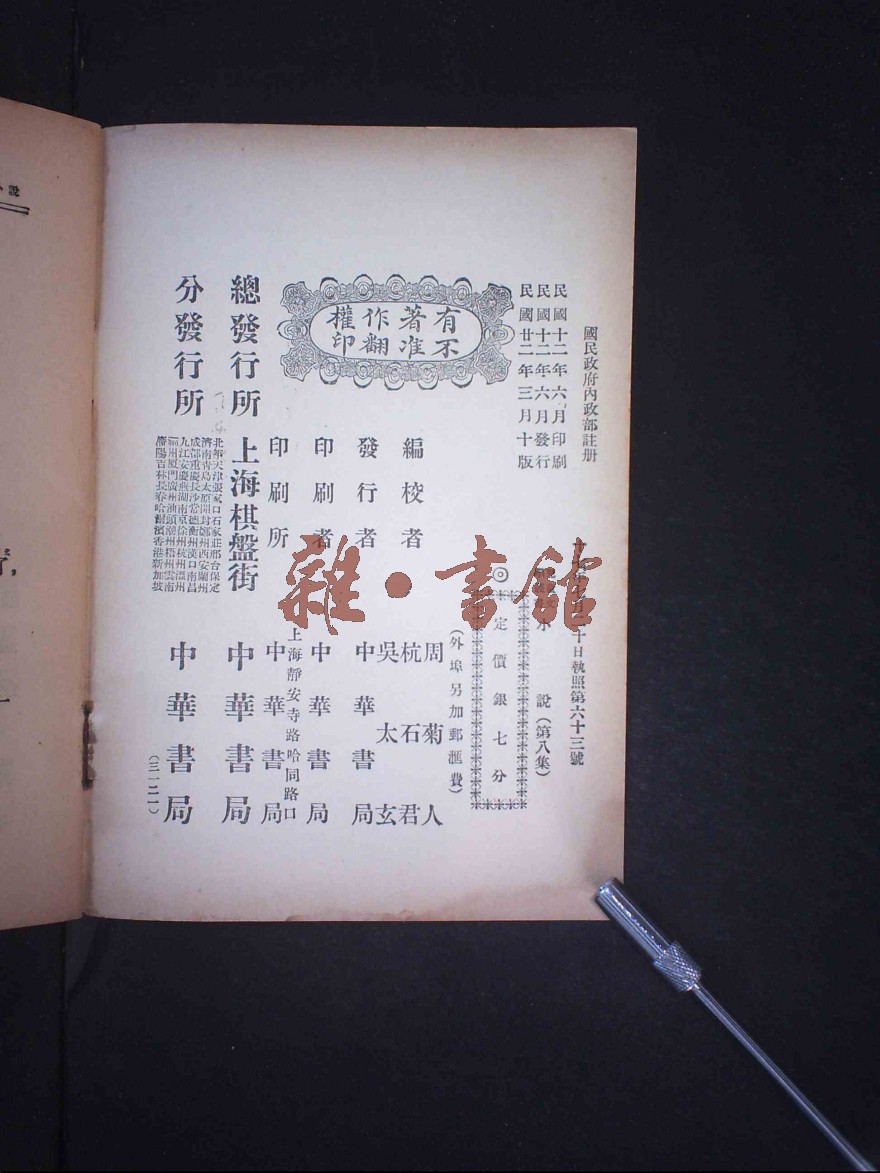 國民政府內政部註册
十日執照第六十三號
民國十二年六月印刷
民國十二年六月發行
民國廿二年三月十版
說(第八集)
◎定價銀七分
(外埠另加郵滙費)
有著作權
不准翻印
編校者
周菊人
杭石君
吳太玄
發行者 中華書局
印刷者 中華書局
上海靜安寺路哈同路口
印刷所 中華書局
總發行所 上海棋盤街 中華書局
分發行所
北平天津張家口石家莊邢台保定
濟南青島太原開封鄭州西安蘭州
成都重慶長沙常德衡州漢口南昌
九江安慶蕪湖南京徐州杭州溫州
福州厦門廣州汕頭潮州梧州雲南
瀋陽吉林長春哈爾濱香港新加坡
中華書局
(三一二一)
說
雜·書館